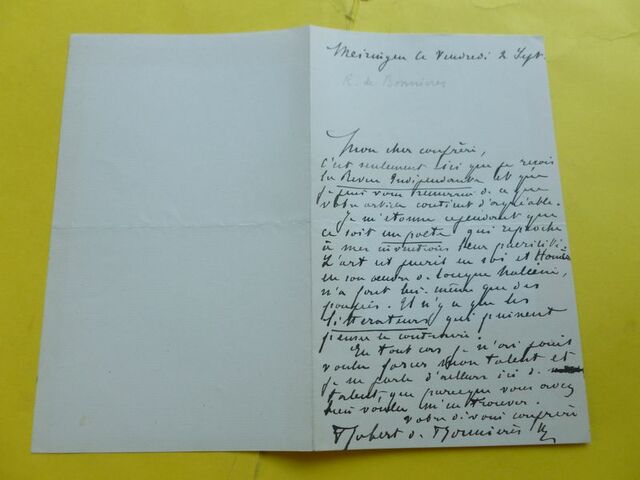 Meiringen le Vendredi 2 Sept.
R. de Bonnières
Mon cher confrère,
C'est seulement ici que je reçois
la Revue Indépendante et que
je puis vous remercier de ce que
votre article contient d'agréable.
Je m'étonne cependant que
ce soit un poète qui reproche
à mes inventions leur puérilité.
L'art est puéril en soi et Homère
en son œuvre de longue haleine,
n'a fait lui-même que des
poupées. Et il n'y a que les
littérateurs qui puissent
penser le contraire.
En tout cas je n'ai point
voulu forcer mon talent et
je ne parle d'ailleurs ici de
talent, que parce que vous avez
bien voulu m'en trouver.
votre dévoué confrère
Robert de Bonnières